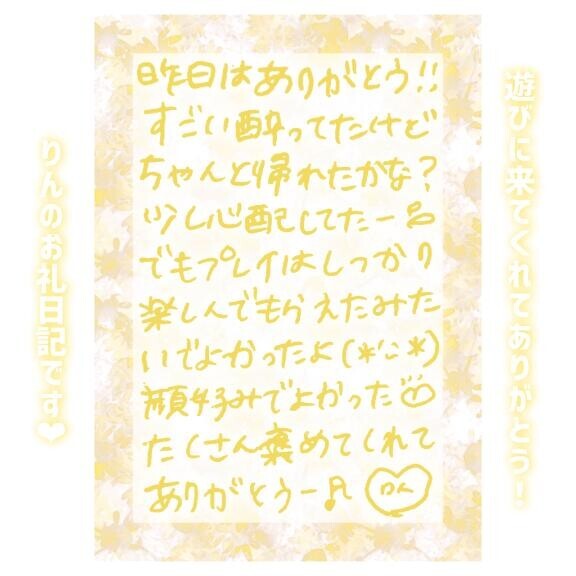 遊びに来てくれてありがとう！
昨日はありがとう!!
すごい酔ってたけど
ちゃんと帰れたかな？
少し心配してたー
でもプレイはしっかり
楽しんでもらえたみた
いでよかったよ(*'ﾆ*)
顔好みでよかった
たくさん褒めてくれて
ありがとうー♪
りん
りんのお礼日記です❤